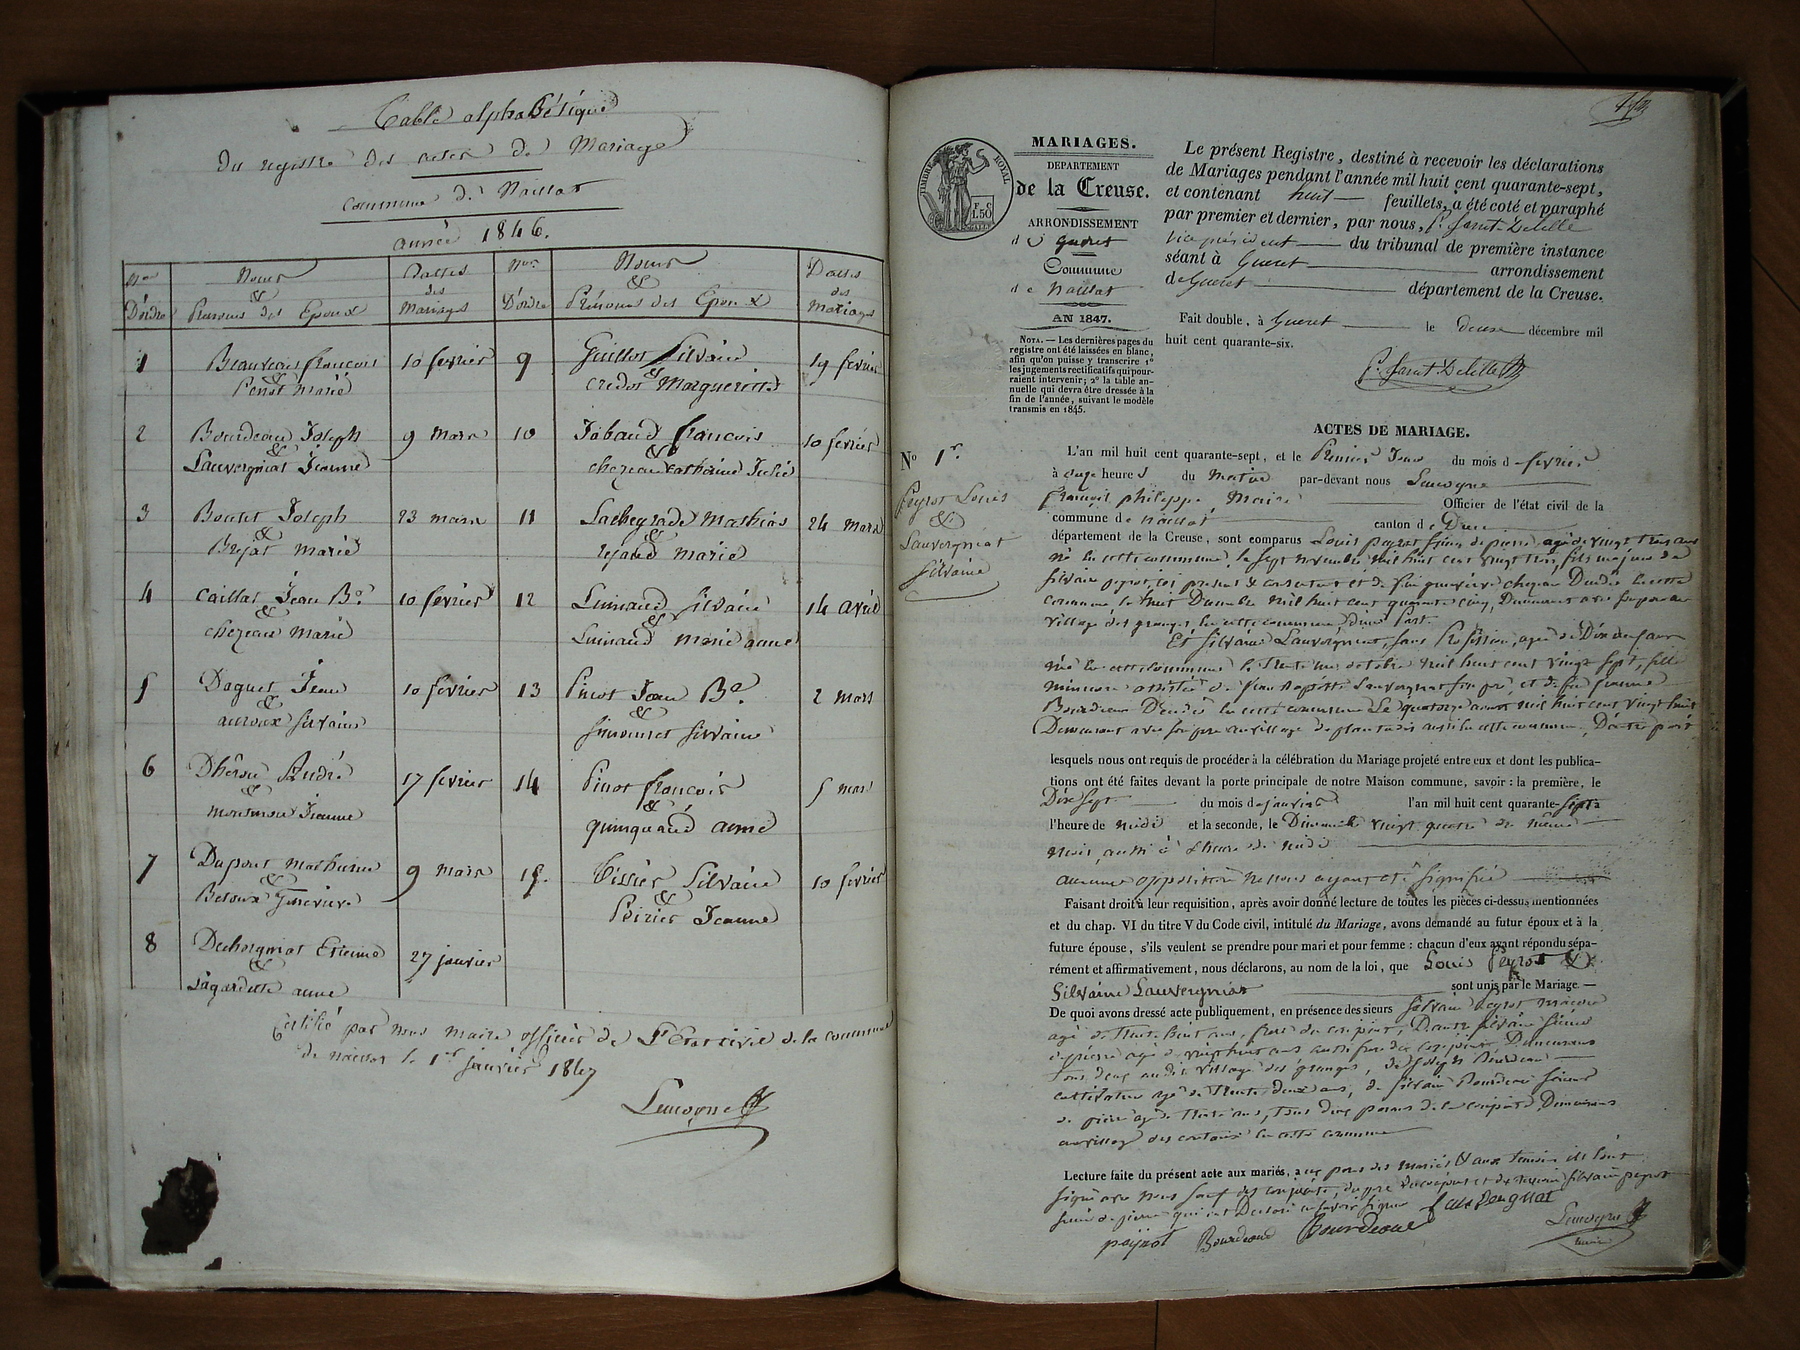 Table alphabétique
du registre des actes de Mariage
commune de Naillat
année 1846.
Nos D'ordre
Noms & Prénoms des Epoux
Dattes des Mariages
Nos D'ordre
Noms & Prénoms des Epoux
Dattes des Mariages
1 Beauvais françois & Penot Marie 10 fevrier
2 Bourdeau Joseph & Lauvergniat Jeanne 9 mars
3 Boutet Joseph & Bujat Marie 23 mars
4 Caillat Jean Bte & chezeau Marie 10 fevrier
5 Daguet Jean & auroux silvaine 10 fevrier
6 Dhérou André & Jeanne 17 fevrier
7 Dupont mathurin & Betoux Genevieve 9 mars
8 Etienne & Lagardette anne 27 janvier
9 Guillot Silvain & credot Margueritte 19 fevrier
10 Jabaud francois & chezeau catherine Julie 10 fevrier
11 Lachegrade Mathias & rejaud Marie 24 mars
12 Luinaud Silvain & Luinaud Marie anne 14 avril
13 Pinot Jean Bte & simounet silvaine 2 mars
14 Pinot francois & quinquaud anne 5 mars
15. Tissier Silvain & Poirier Jeanne 10 fevrier
Certifié par nous maire officier de l'Etat civil de la commune
de naillat le 1er janvier 1847
TIMBRE ROYAL
F. C.
1.50
MARIAGES.
DEPARTEMENT
de la Creuse.
ARRONDISSEMENT
de Guéret
Commune
de Naillat
AN 1847.
NOTA. — Les dernières pages du
registre ont été laissées en blanc,
afin qu'on puisse y transcrire 1º
les jugements rectificatifs qui pour-
raient intervenir; 2º la table an-
nuelle qui devra être dressée à la
fin de l'année, suivant le modèle
transmis en 1845.
Le présent Registre, destiné à recevoir les déclarations
de Mariages pendant l'année mil huit cent quarante-sept,
et contenant huit feuillets, a été coté et paraphé
par premier et dernier, par nous,
vice président du tribunal de première instance
séant à Gueret arrondissement
de Gueret département de la Creuse.
Fait double, à Gueret le douze décembre mil
huit cent quarante-six.
ACTES DE MARIAGE.
Nº 1er.
Peyrot Louis
&
Lauvergniat
Silvaine
L'an mil huit cent quarante-sept, et le Premier Jour du mois de fevrier
à onze heures du Matin par-devant nous
françois philippe Maire Officier de l'état civil de la
commune de naillat canton de Dun
département de la Creuse, sont comparus Louis peyrot de pierre agé de vingt trois ans
né en cette commune le sept novembre mil huit cent vingt trois, fils majeur de
silvain peyrot, ici present & consentant et de genevieve chezeau Dcédée en cette
commune le huit Decembre mil huit cent quarante cinq, Demeurant avec son pere au
village des granges en cette commune d'une Part.
Et Silvaine Lauvergniat, sans Profession, agée de Dix neuf ans
née en cette commune le Trente un octobre mil huit cent vingt sept, fille
mineure assistée de Jean Baptiste Lauvergniat son pere, et de feu jeanne
Bourdeau Décédée en cette commune Le quatorze mil huit cent vingt huit
Demeurant avec son pere au village de aussi en cette commune, D'autre part
lesquels nous ont requis de procéder à la célébration du Mariage projeté entre eux et dont les publica-
tions ont été faites devant la porte principale de notre Maison commune, savoir : la première, le
Dix sept du mois de janvier l'an mil huit cent quarante-sept
l'heure de midi et la seconde, le Dimanche vingt quatre du même
mois, aussi à l'heure de midi
aucune opposition ne nous ayant été signifiée
Faisant droit à leur requisition, après avoir donné lecture de toutes les pièces ci-dessus mentionnées
et du chap. VI du titre V du Code civil, intitulé du Mariage, avons demandé au futur époux et à la
future épouse, s'ils veulent se prendre pour mari et pour femme : chacun d'eux ayant répondu sépa-
rément et affirmativement, nous déclarons, au nom de la loi, que Louis Peyrot &
Silvaine Lauvergniat sont unis par le Mariage. —
De quoi avons dressé acte publiquement, en présence des sieurs Silvain Peyrot macon
agé de Trente huit ans, frere du conjoint, D'autre silvain
de pierre agé de vingt huit ans aussi frere du conjoint Demeurant
Tous deux au dit village des granges, de Joseph Bourdeau
cultivateur agé de Trente deux ans, de silvain Bourdeau
de pierre agé de Trente ans, tous deux de la conjointe, Demeurans
au village des en cette commune
Lecture faite du présent acte aux mariés, aux peres des mariés & aux temoins ils l'ont
signé avec nous sauf
peyrot Bourdeaud Bourdeaud Lauvergniat